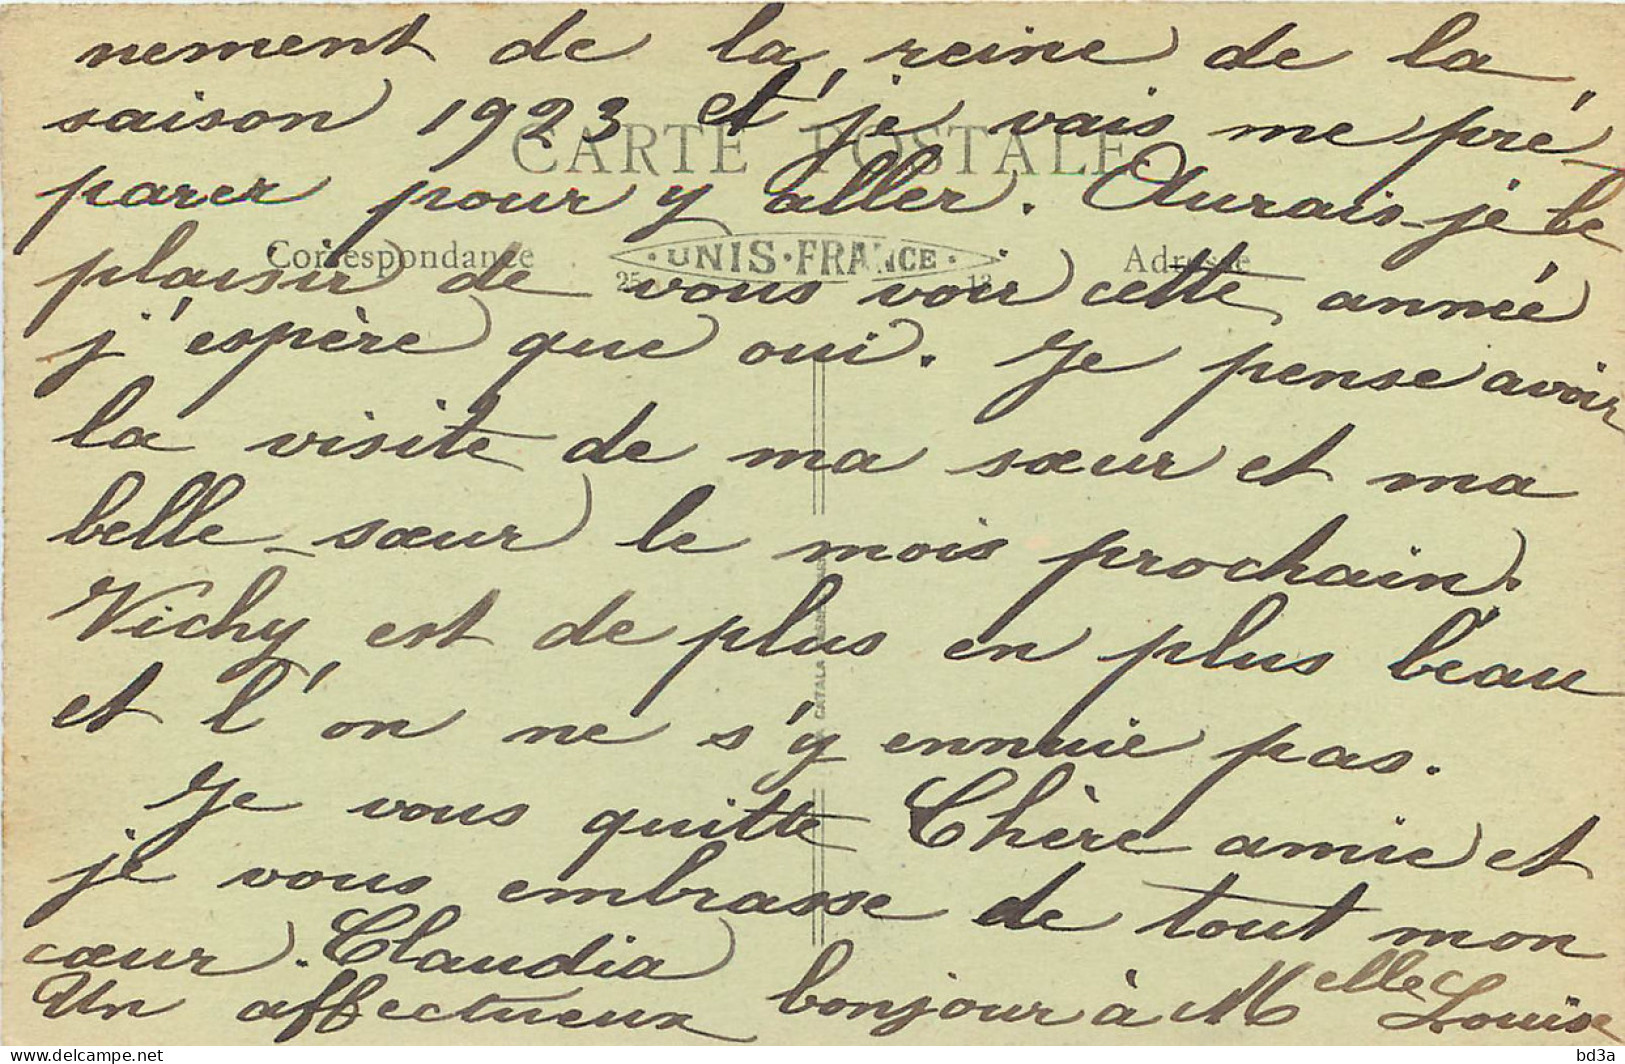 nement de la reine de la
saison 1923 et je vais me pré-
CARTE POSTALE
parer pour y aller. Aurais-je le
Correspondance
UNIS-FRANCE
Adresse
plaisir de vous voir cette année
25 13
j'espère que oui. Je pense avoir
la visite de ma sœur et ma
belle-sœur le mois prochain.
Vichy est de plus en plus beau
et l'on ne s'y ennuie pas.
CATALA
Je vous quitte Chère amie et
je vous embrasse de tout mon
cœur. Claudia
Un affectueux bonjour à Melle Louise
bd3a